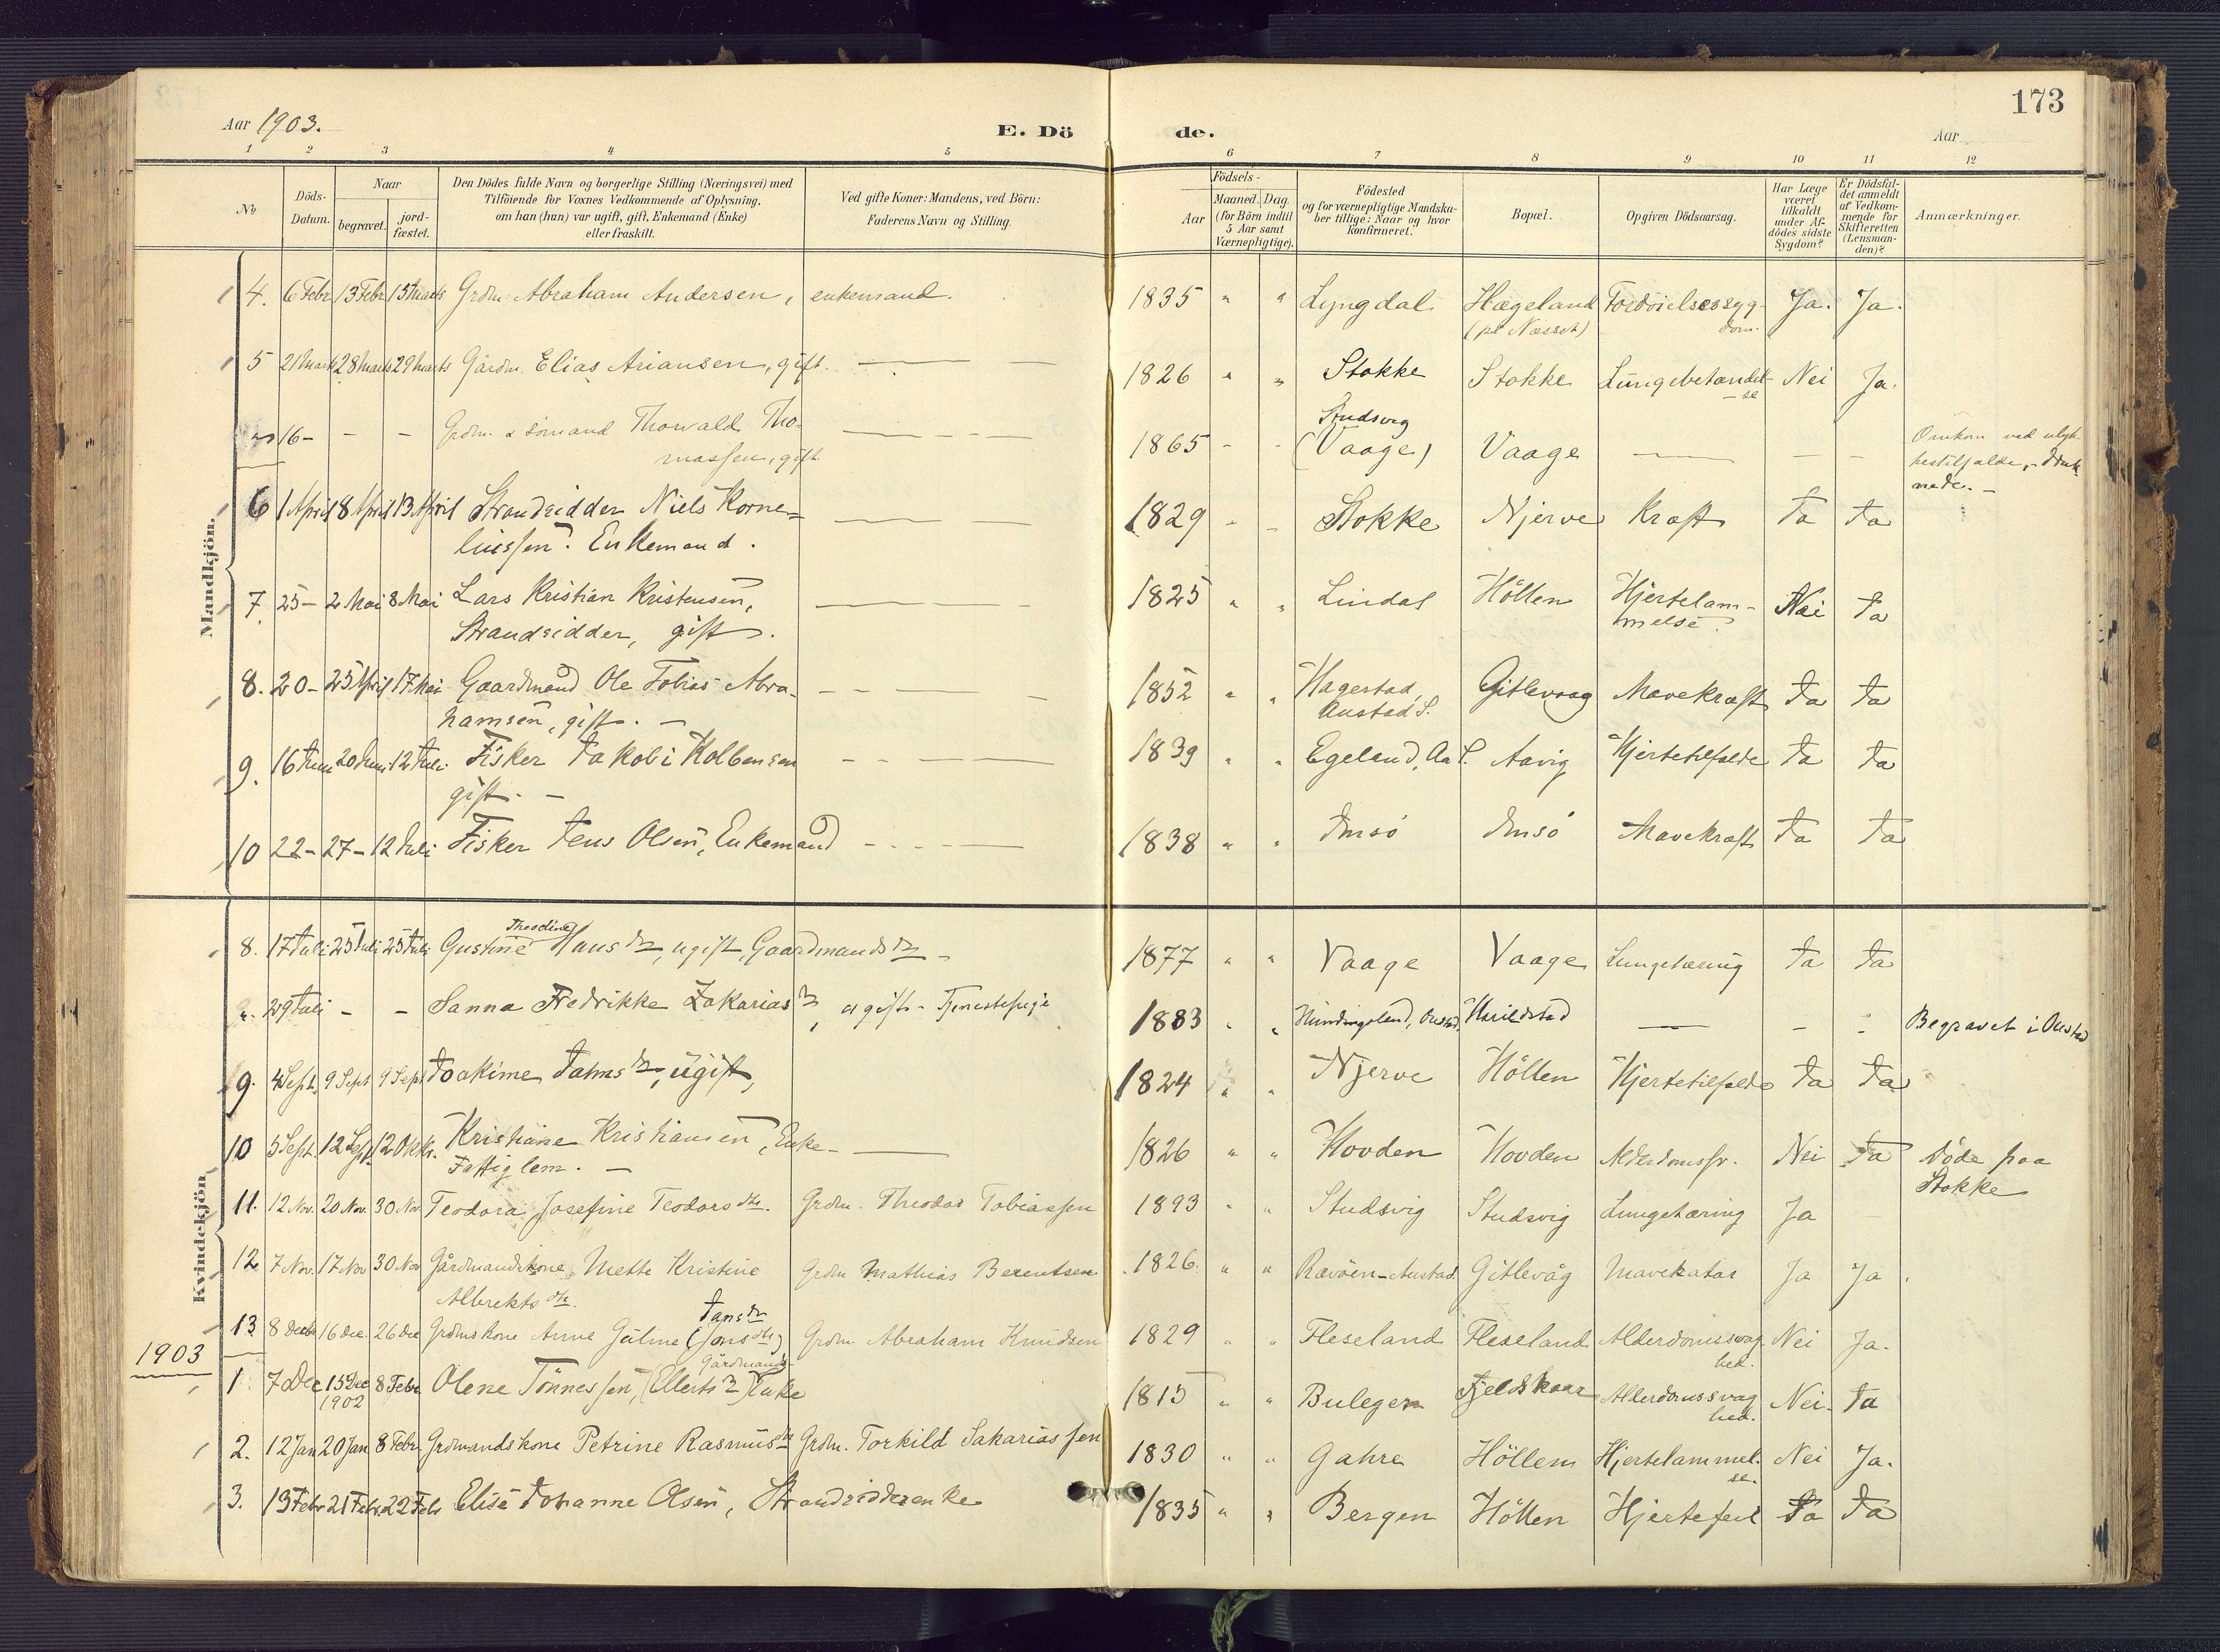 173
Aar 1903. E. Dö de. Aar
1 2 3 4 5 6 7 8 9 10 11 12
No
Döds-Datum.
Naar
begravet. jord-fæstet.
Den Dödes fulde Navn og borgerlige Stilling (Næringsvei) med
Tilföiende for Voxnes Vedkommende af Oplysning,
om han (hun) var ugift, gift, Enkemand (Enke)
eller fraskilt.
Ved gifte Koner: Mandens, ved Börn:
Faderens Navn og Stilling.
Födsels-
Aar
Maaned. Dag.
(for Börn indtil
5 Aar samt
Værnepligtige).
Födested
og for værnepligtige Mandska-
ber tillige: Naar og hvor
konfirmeret.
Bopæl.
Opgiven Dödsaarsag.
Har Læge
været
tilkaldt
under Af-
dödes sidste
Sygdom?
Er Dödsfal-
det anmeldt
af Vedkom-
mende for
Skifteretten
(Lensman-
den)?
Anmærkninger.
Mandkjön.
4. 6 Febr 13 Febr 15 Marts Grdm. Abraham Andersen, enkemand. 1835 " " Lyngdal Hægeland Fordöielsessyg- Ja. Ja.
(på Næsset) dom.
5 21 Marts 28 Marts 29 Marts Gårdm. Elias Ariansen, gift. — 1826 " " Stokke Stokke Lungebetændel- Nei Ja.
se
Studsvig
" 16 - - - Grdm. & sömand Thorvald Tho- — 1865 - - (Vaage) Vaage — - - Omkom ved ulyk-
massen, gift. kestilfælde, - druk-
nede. -
6 1 April 8 April 13 April Strandsidder Niels Korne= — 1829 " " Stokke Njerve Kræft Ja Ja
liussen. Enkemand.
7. 25 - 2 Mai 8 Mai Lars Kristian Kristensen, — 1825 " " Lindal Höllen Hjertelam- Nei Ja
Strandsidder, gift. melse.
8. 20 - 25 April 17 Mai Gaardmand Ole Tobias Abra- — 1852 " " Hagestad, Gitlevaag Mavekræft Ja Ja
hamsen, gift. - Austad S.
9. 16 Juni 20 Juni 12 Juli Fisker Jakob Kolbensen — 1839 " " Egeland, Au S. Aavig Hjertetilfælde Ja Ja
gift. -
10 22 - 27 - 12 Juli Fisker Jens Olsen, Enkemand — 1838 " " Imsö Imsö Mavekræft Ja Ja
Kvindekjön
Theodine
8. 17 Juli 25 Juli 25 Juli Gustine Hansdr, ugift, Gaardmandsdr - 1877 " " Vaage Vaage Lungetæring Ja Ja
29 Juli - - Sanna Fredrikke Zakariasdr, ugift - Tjenestepige 1883 " " Hundingsland, Austad, Harildstad — - - Begravet i Austad
9. 4 Sept. 9 Sept 9 Sept Joakime Jahnsdr, ugift, 1824 " " Njerve Höllen Hjertetilfælde Ja Ja
10 5 Sept. 12 Sept. 12 Okt. Kristiane Kristiansen, Enke - — 1826 " " Hovden Hovden Alderdomssv. Nei Ja Döde paa
Fattiglem. - Stokke
11. 12 Nov. 20 Nov. 30 Nov Teodora Josefine Teodorsdtr. Grdm. Theodor Tobiassen 1893 " " Studsvig Studsvig Lungetæring Ja -
12 7 Nov. 17 Nov 30 Nov Gårdmandskone Mette Kristine Grdm Mathias Berentsen 1826. " " Rævöen-Austad. Gitlevåg Mavekatar Ja Ja.
Albrektsdtr. Jansdr
13 8 Decbr 16 Dec. 26 Dec Grdmskone Anne Güline (Jonsdtr) Grdm. Abraham Knudsen 1829 " " Fleseland Fleseland Alderdomssvag- Nei Ja.
hed.
1903 Gårdmands-
1. 7 Dec 15 Dec 8 Febr. Olene Tönnessen, (Ellertsdr) Enke 1815 " " Buleger Fjeldskaar Alderdomssvag Nei. Ja
1902 hed.
2. 12 Jan 20 Jan 8 Febr. Grdmandskone Petrine Rasmusdtr Grdm. Torkild Sakariassen 1830 " " Gahre Höllen Hjertelammel- Nei Ja.
se.
3. 13 Febr 21 Febr. 22 Febr Elise Johanne Olsen, Strandsidderenke 1835 " " Bergen Höllen Hjertefeil Ja Ja